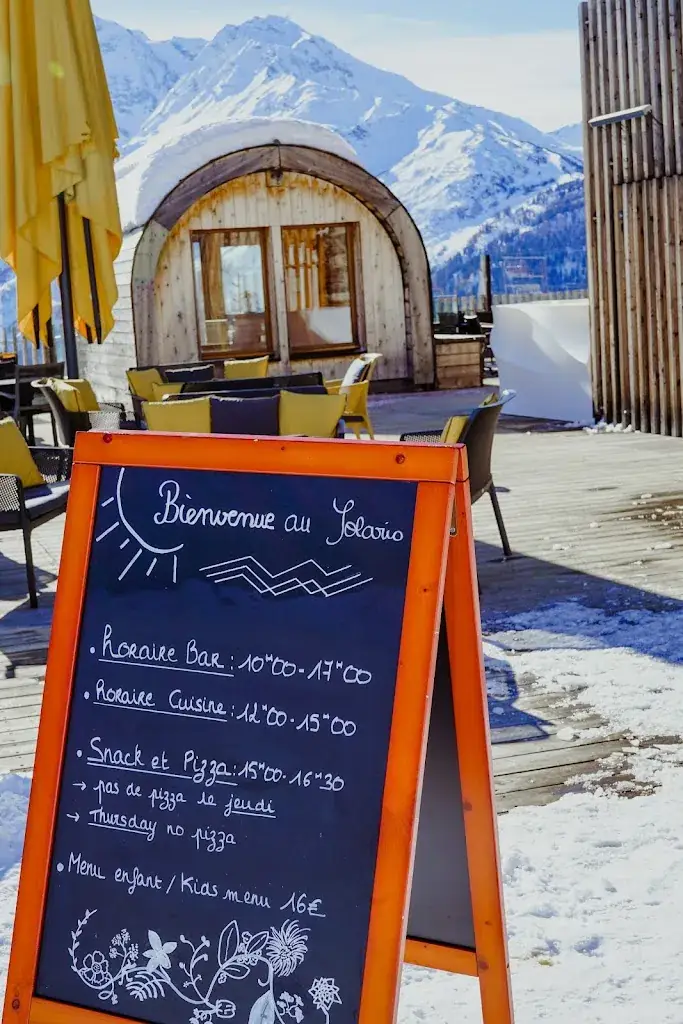 Bienvenue au Solario
• Horaire Bar : 10"00 - 17"00
• Horaire Cuisine : 12"00 - 15"00
• Snack et Pizza : 15"00 - 16"30
→ pas de pizza le jeudi
→ Thursday no pizza
• Menu enfant / Kids menu 16€